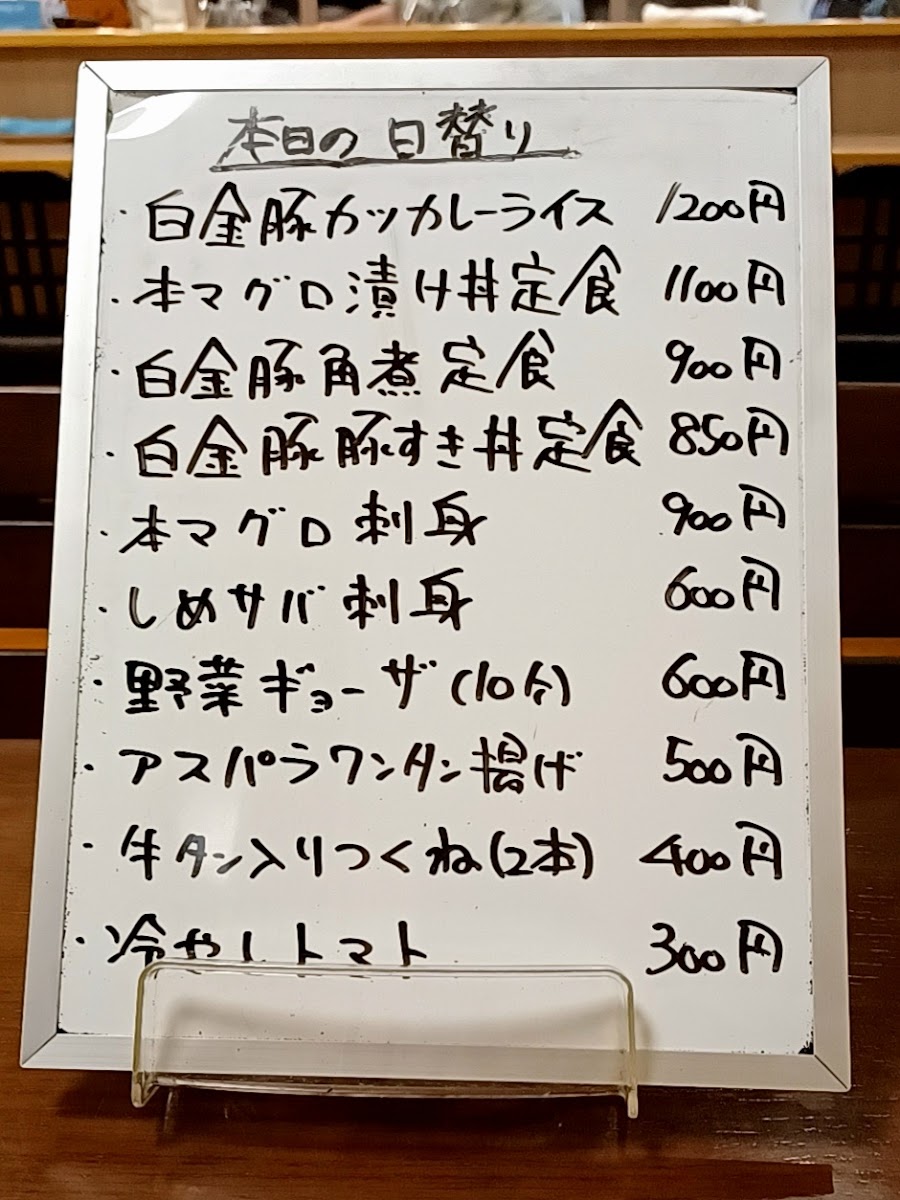 本日の日替り
・白金豚カツカレーライス 1200円
・本マグロ漬け丼定食 1100円
・白金豚角煮定食 900円
・白金豚豚すき丼定食 850円
・本マグロ刺身 900円
・しめサバ刺身 600円
・野菜ギョーザ(10ケ) 600円
・アスパラワンタン揚げ 500円
・牛タン入りつくね(2本) 400円
・冷やしトマト 300円